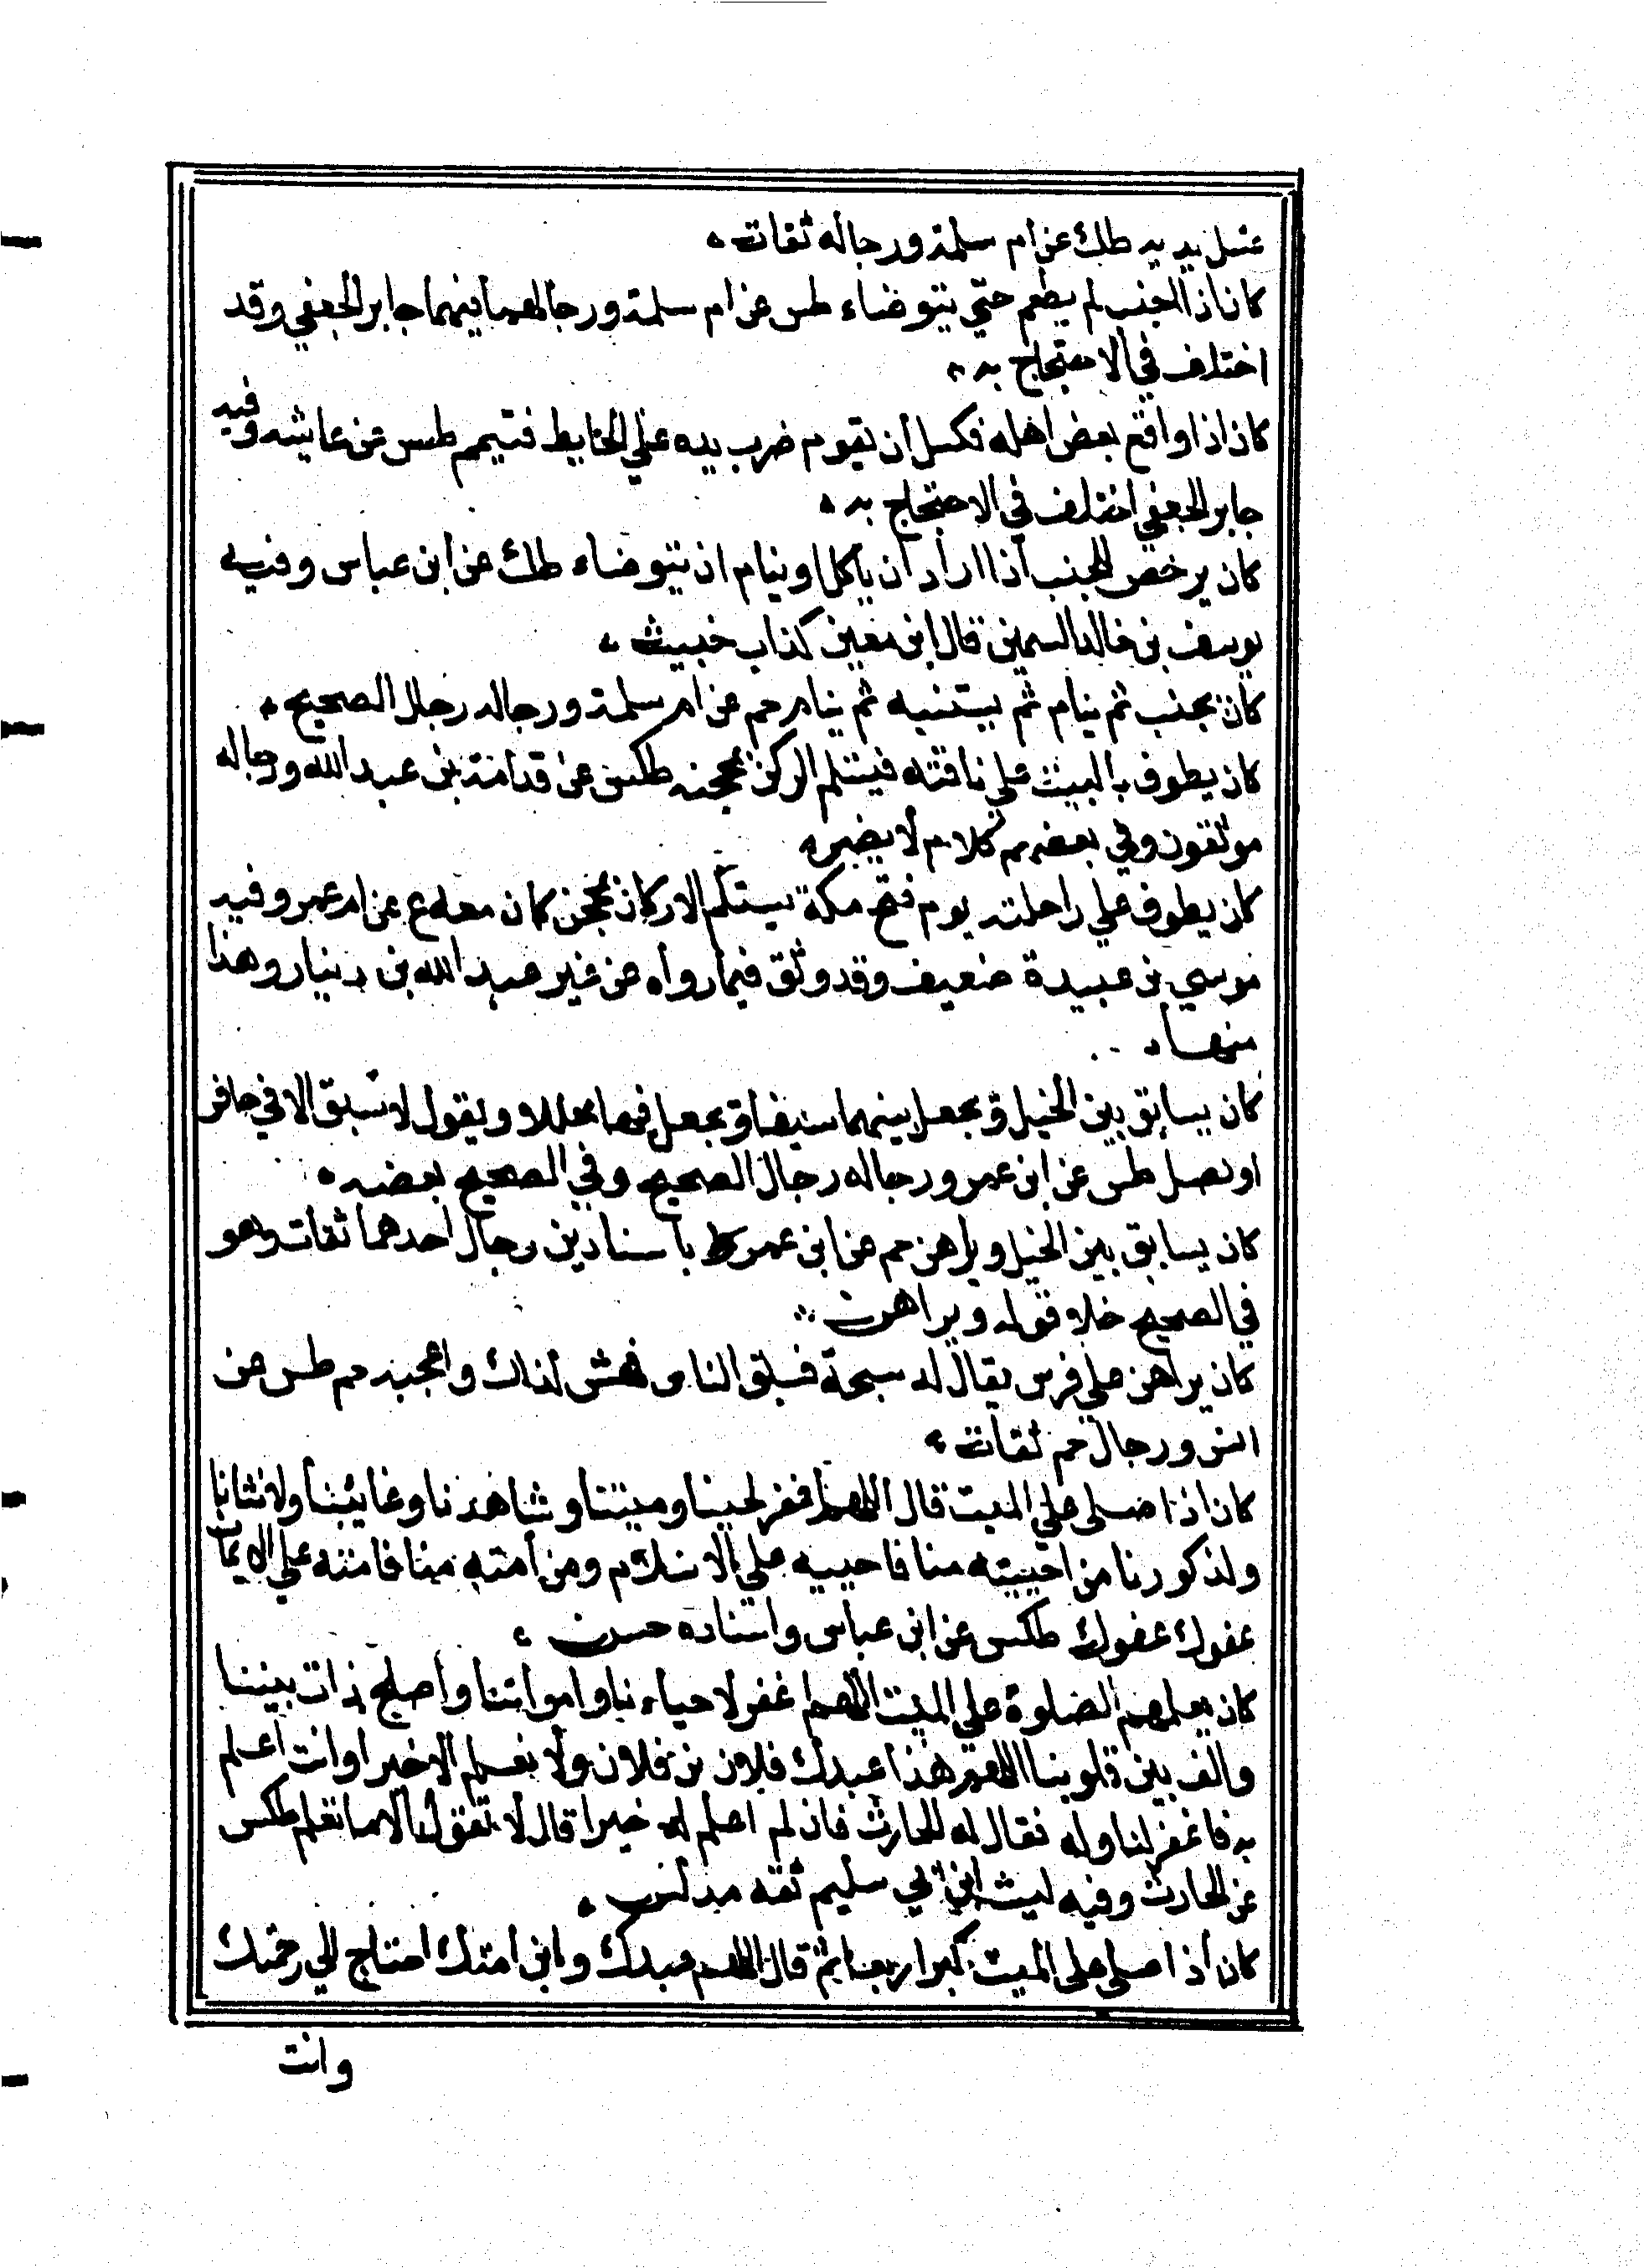 غسل يديه طك عن ام سلمة ورجاله ثقات
كان اذا اجنب لم يطعم حتي يتوضاء طس عن ام سلمة ورجالهما فيهما جابر الجعفي وقد
اختلف في الاحتجاج به
كان اذا واقع بعض اهله فكسل ان يقوم ضرب يده علي الحايط فتيمم طس عن عايشه وفيه
جابر الجعفي اختلف في الاحتجاج به
كان يرخص للجنب اذا اراد ان ياكل او ينام ان يتوضاء طك عن ابن عباس وفيه
يوسف بن خالد السمين قال ابن معين كذاب خبيث
كان يجنب ثم ينام ثم يستنبه ثم ينام حم عن ام سلمة ورجاله رجال الصحيح
كان يطوف بالبيت علي ناقته فيستلم الركن بمحجنه طكس عن قدامة بن عبد الله ورجاله
موثقون وفي بعضهم كلام لا يضره
كان يطوف علي راحلته يوم فتح مكة يستلم الاركان بمحجن كان معه ع عن ابن عمر وفيه
موسي بن عبيدة ضعيف وقد وثق فيما رواه عن غير عبد الله بن دينار وهذا
منها
كان يسابق بين الخيل ويجعل بينهما سبقا ويجعل فيها محللا ويقول لا سبق الا في حافر
او نصل طس عن ابن عمر ورجاله رجال الصحيح وفي الصحيح بعضه
كان يسابق بين الخيل ويراهن حم عن ابن عمر ط باسنادين رجال احدهما ثقات وهو
في الصحيح خلا قوله ويراهن
كان يراهن علي فرس يقال له سبحة فسبق الناس فهش لذاك واعجبه حم طس عن
انس ورجال حم ثقات
كان اذا صلى علي الميت قال اللهم اغفر لحينا وميتنا وشاهدنا وغايبنا ولانثانا
ولذكورنا من احييته منا فاحييه علي الاسلام ومن امته منا فامته علي الايمان
عفوك عفوك طكس عن ابن عباس واسناده حسن
كان يعلمهم الصلوة علي الميت اللهم اغفر لاحياءنا وامواتنا واصلح ذات بيننا
والف بين قلوبنا اللهم هذا عبدك فلان بن فلان ولا نعلم الا خيرا وانت اعلم
به فاغفر لنا وله فقال له الحارث فان لم اعلم له خيرا قال لا تقل الا ما تعلم طكس
عن الحارث وفيه ليث ابن ابي سليم ثقة مدلس
كان اذا صلي علي الميت كبر اربعا ثم قال اللهم عبدك وابن امتك احتاج الي رحمتك
وانت